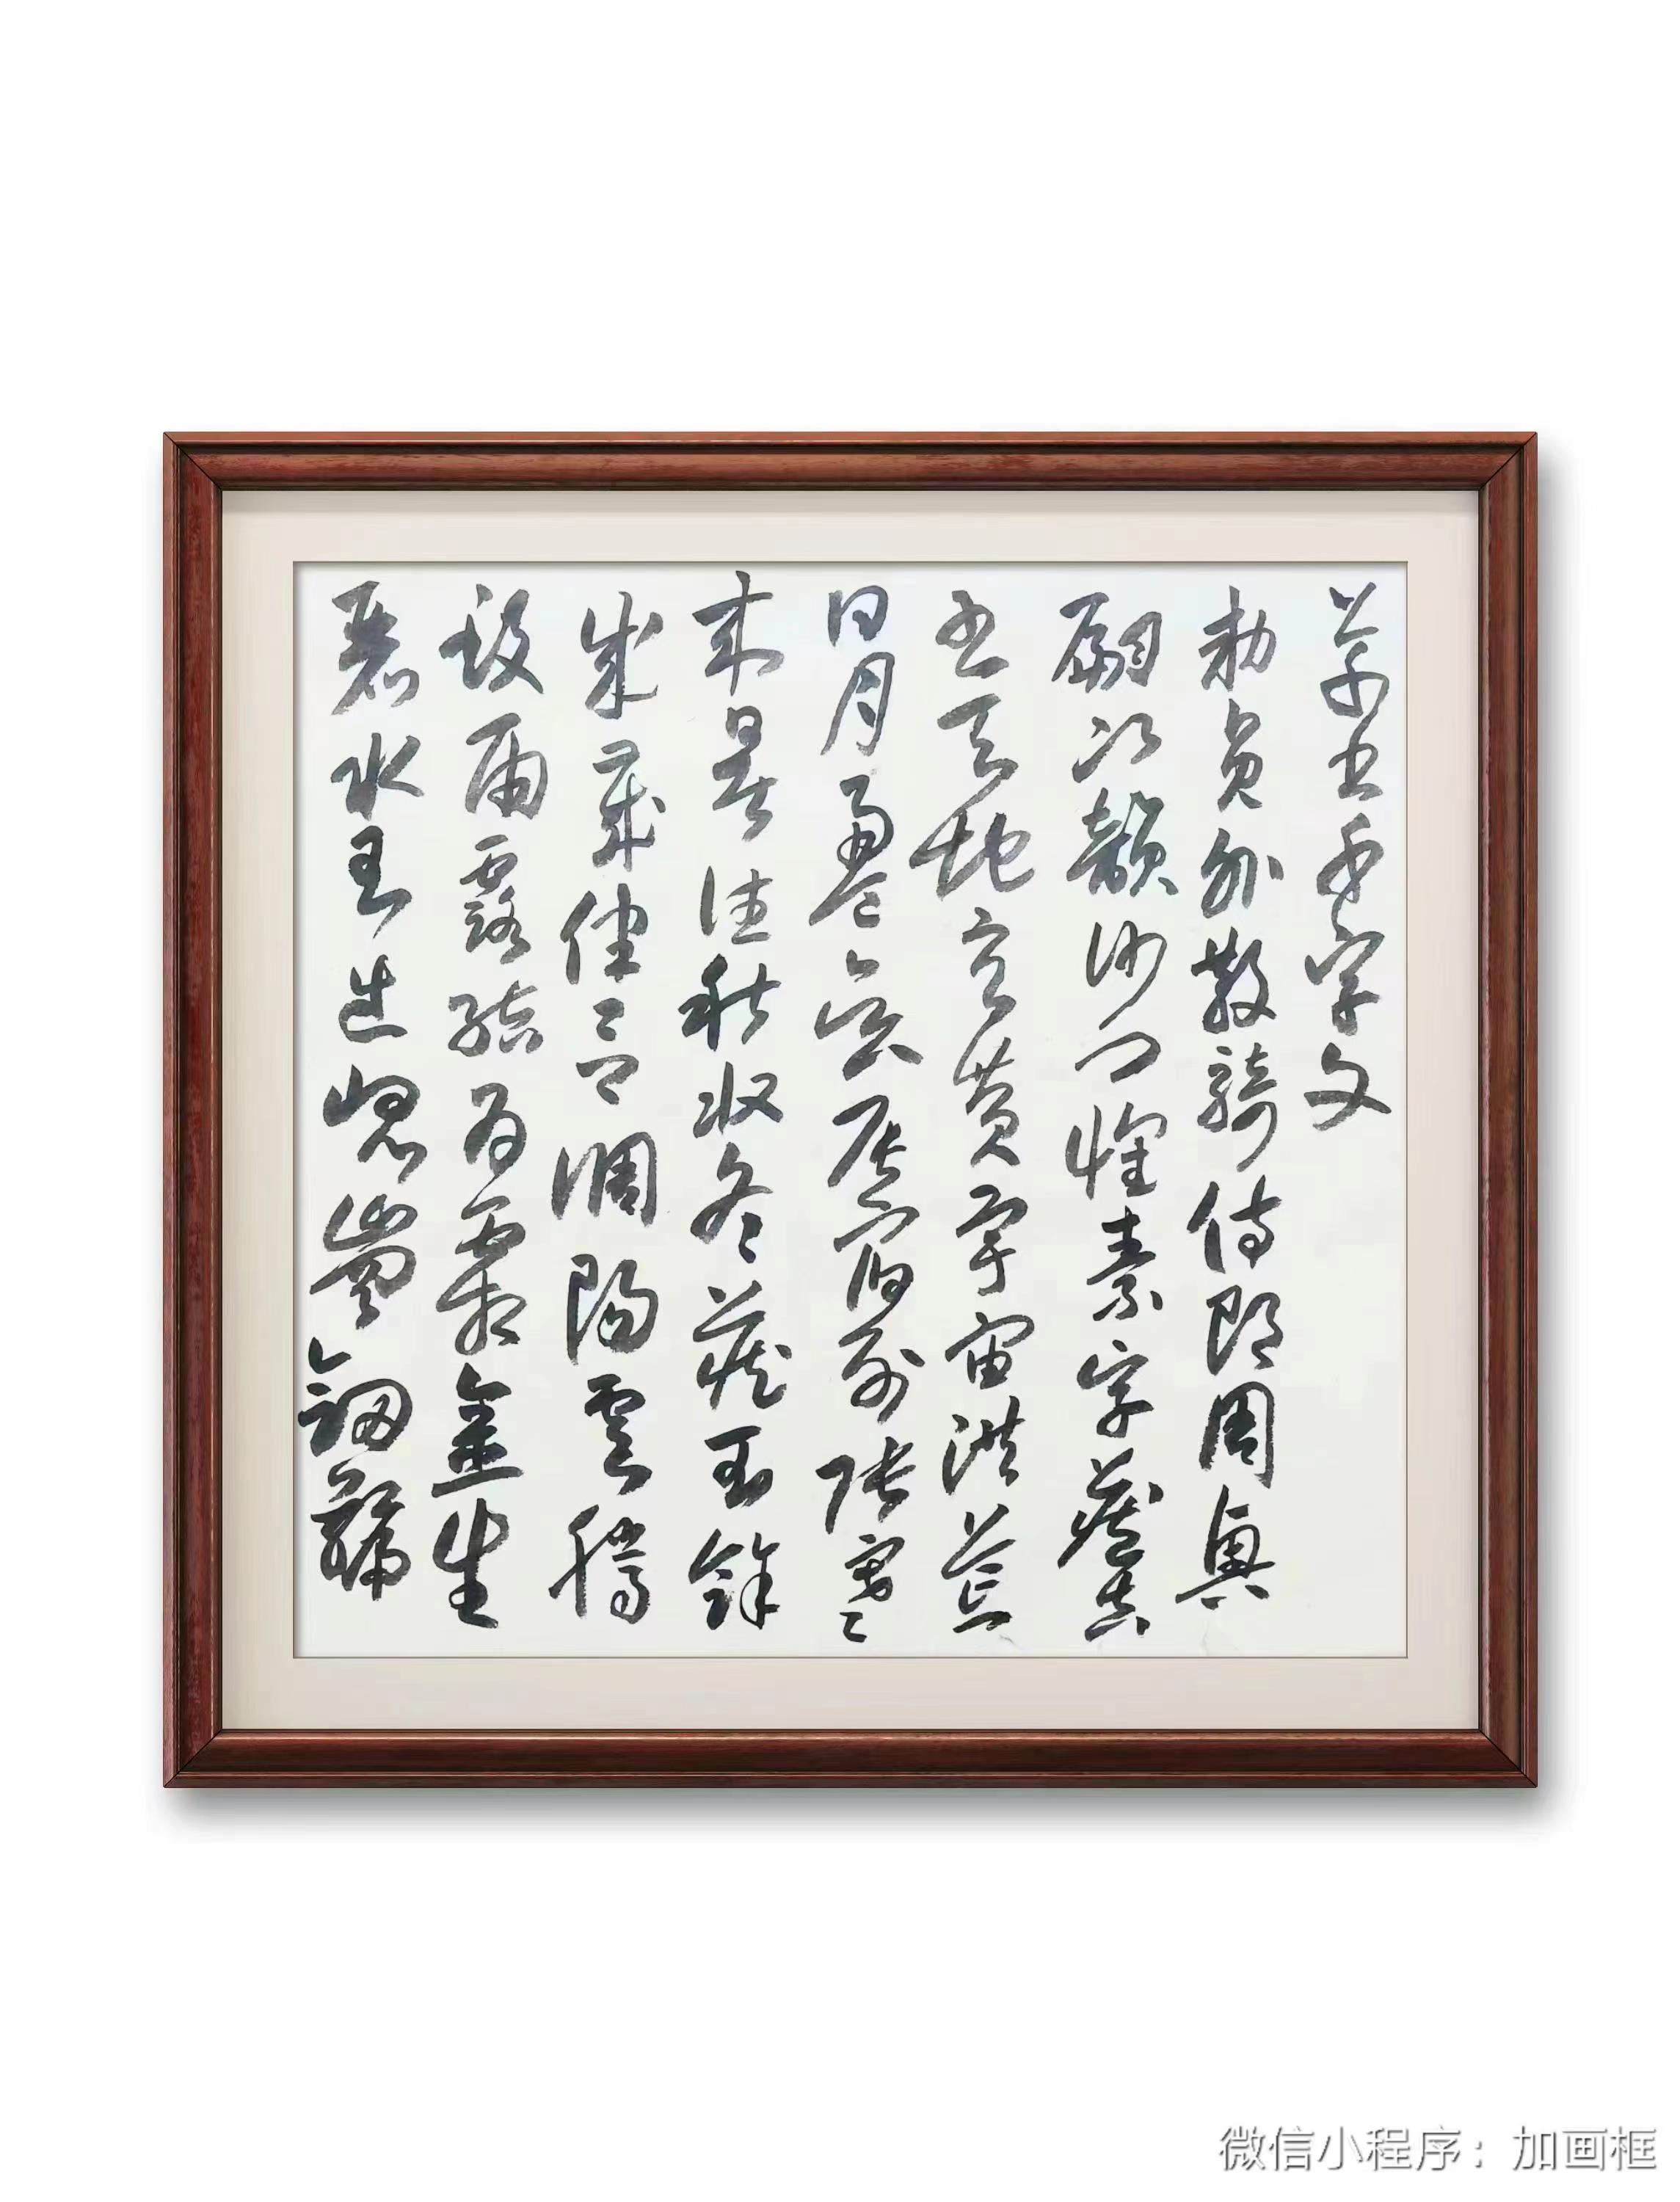 草書千字文
勅員外散騎侍郎周興
嗣次韻沙門懷素字藏真
書天地玄黃宇宙洪荒
日月盈昃辰宿列張寒
來暑往秋收冬藏閏餘
成歲律呂調陽雲騰
致雨露結為霜金生
麗水玉出崐崗劒號
微信小程序：加画框